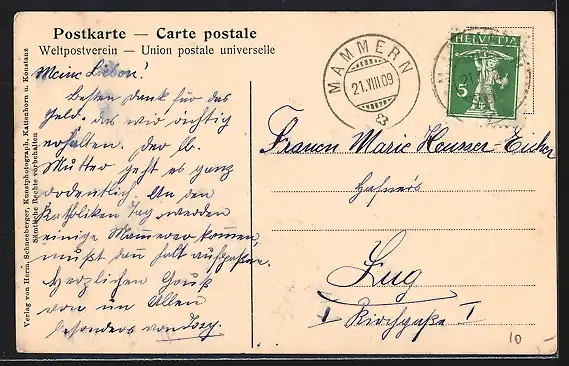 Postkarte — Carte postale
Weltpostverein — Union postale universelle
Verlag von Herm. Schneeberger, Kunstphotograph, Kattenhorn u. Konstanz
Sämtliche Rechte vorbehalten
MAMMERN
21.VIII.09
HELVETIA
5
Meine Lieben!
Besten Dank für das
Geld, das wir richtig
erhalten. Der lb.
Mutter geht es ganz
ordentlich. An den
Katholiken Tag werden
einige Mammerer kommen,
mußt dan halt aufpaßen.
Herzlichen Gruß
von un Allen
besonders von
Frauen Marie Heusser-Eicher
Hafneis
Zug
I Kirchgaße I
10